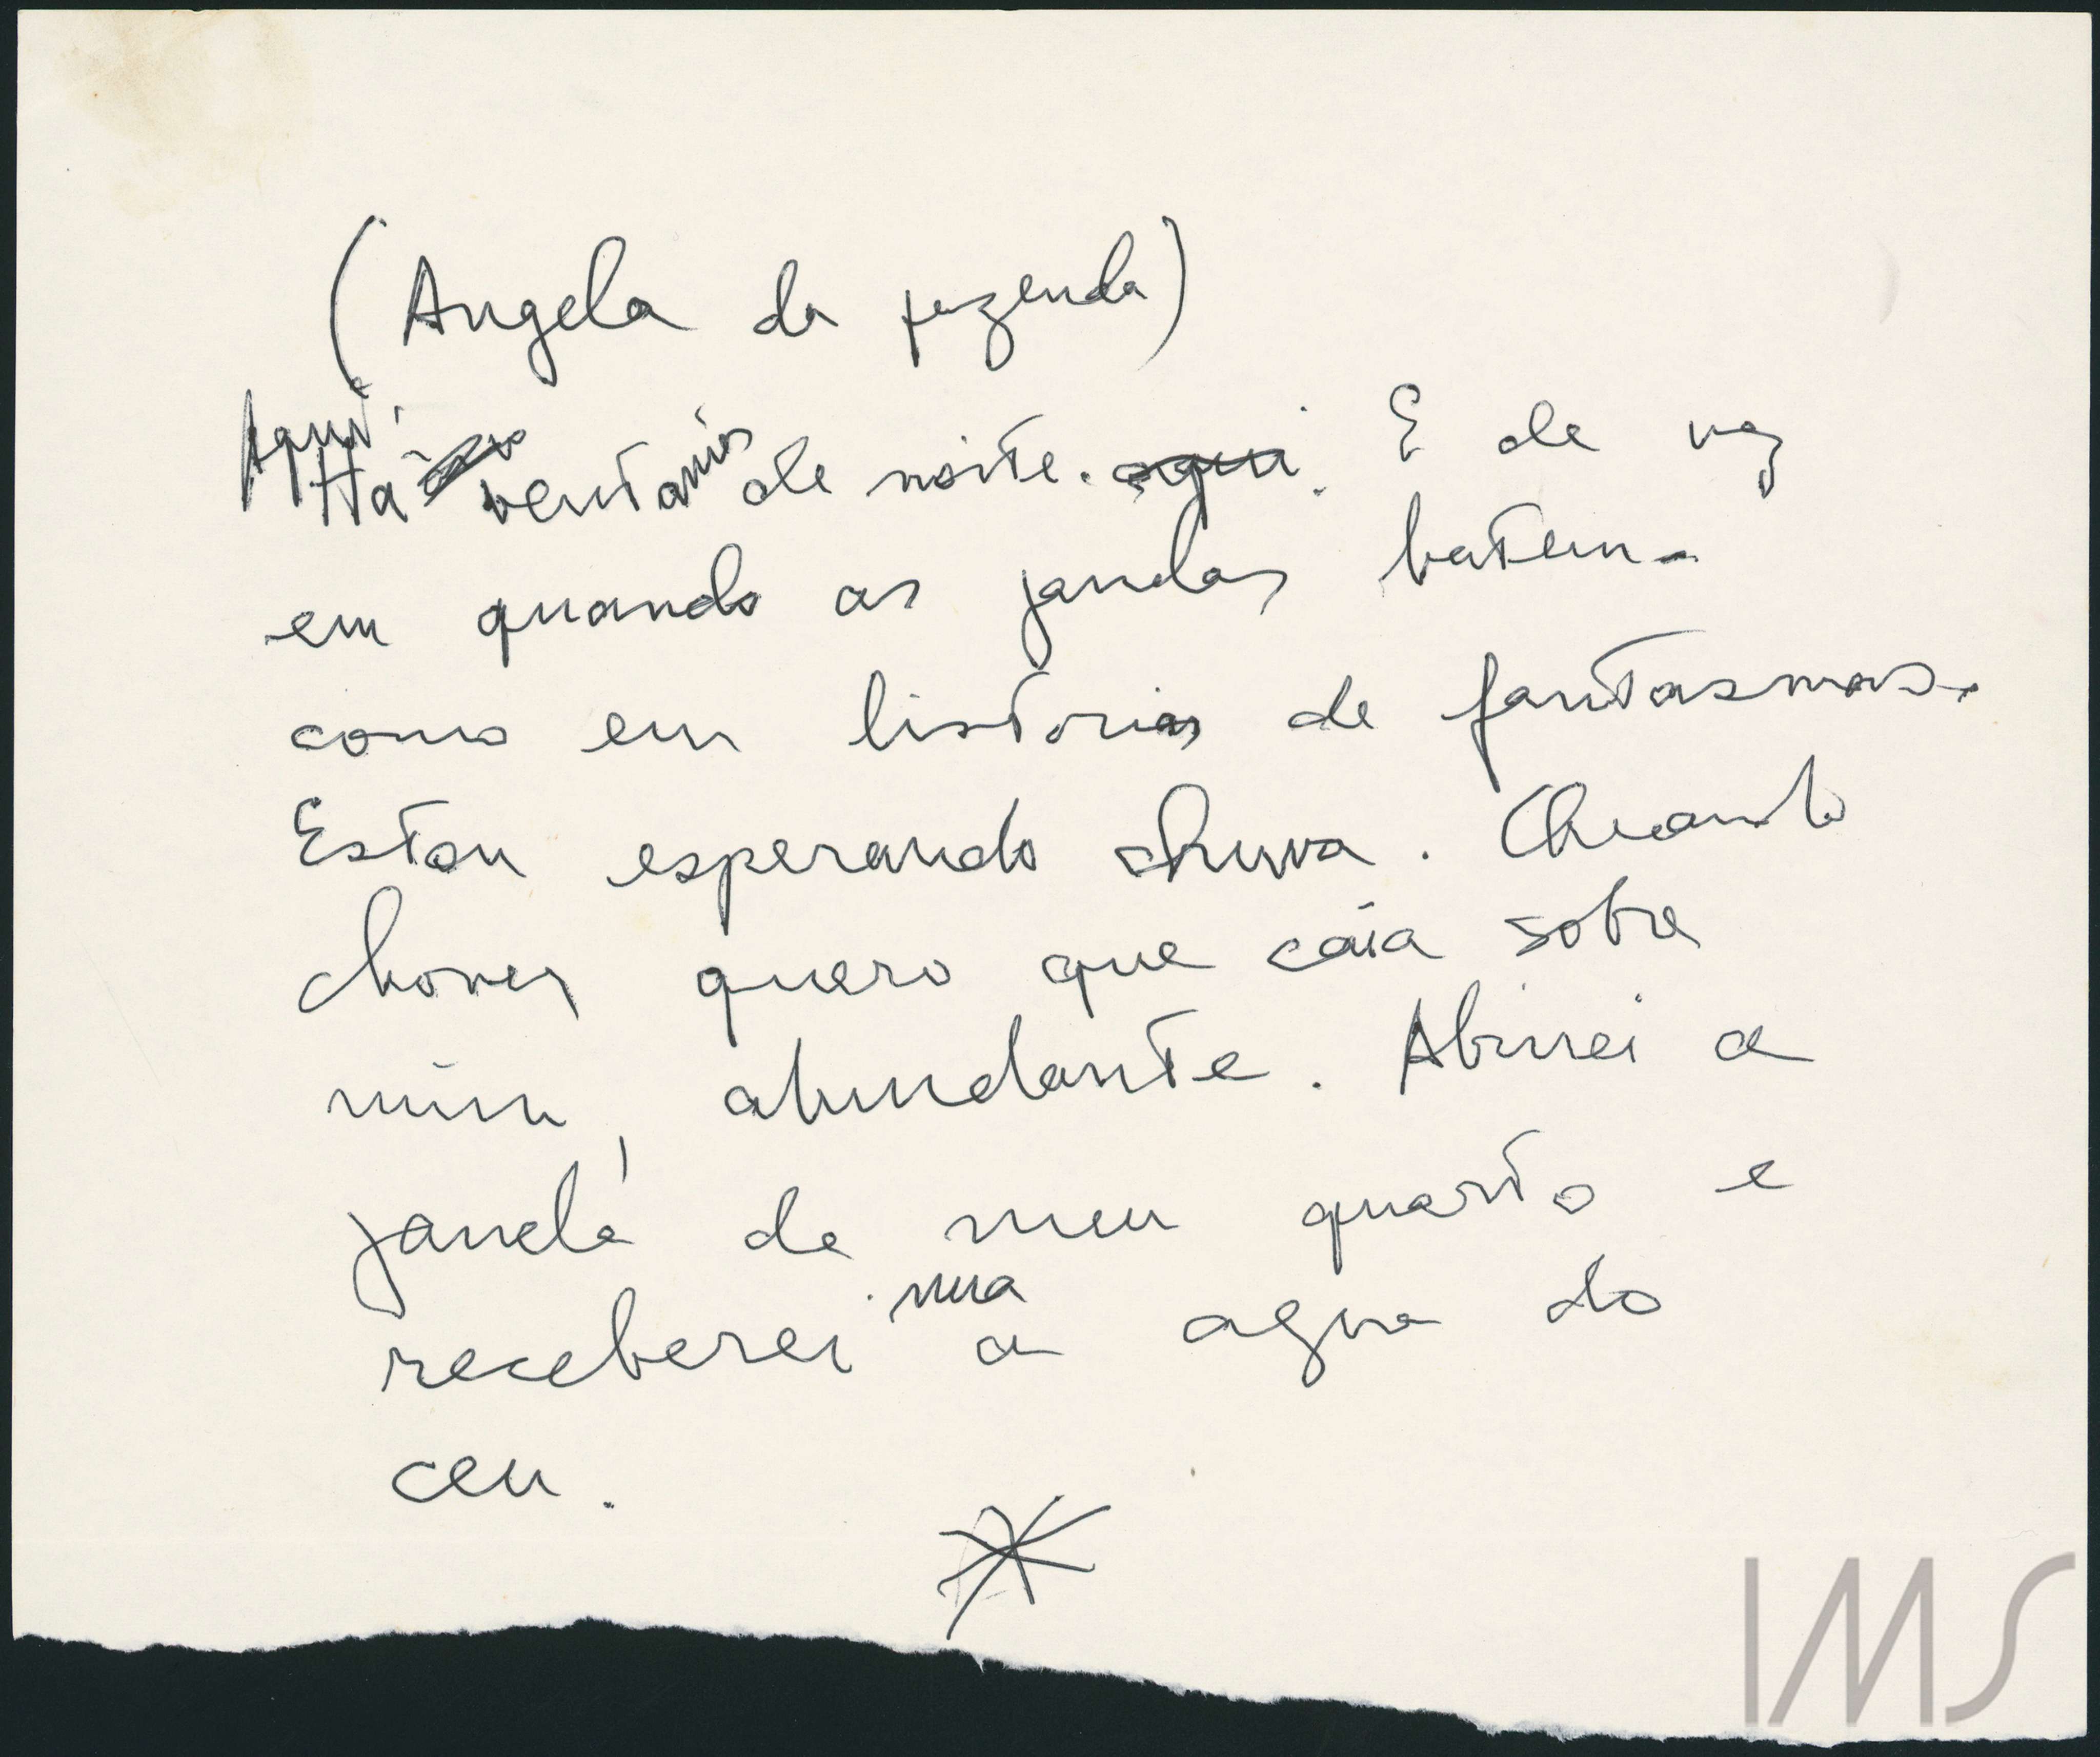 (Angela da fazenda)
Aqui
Há ventanias de noite. aqui. E de vez
em quando as janelas batem
como em historias de fantasmas.
Estou esperando chuva. Quando
chover quero que caia sobre
mim, abundante. Abrirei a
janela de meu quarto e
nua
receberei a agua do
ceu.
*
IMS